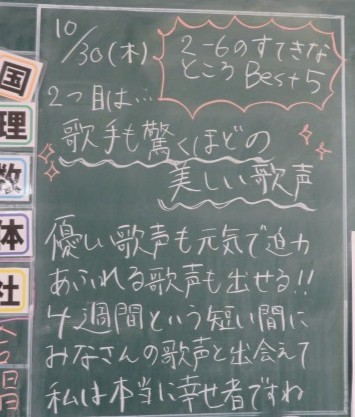 10/30(木)
2-6のすてきな
ところ Best5
2つ目は…
歌手も驚くほどの
美しい歌声
優しい歌声も元気で迫力
あふれる歌声も出せる!!
4週間という短い間に
みなさんの歌声と出会えて
私は本当に幸せ者ですね
国
理
数
体
社
合唱